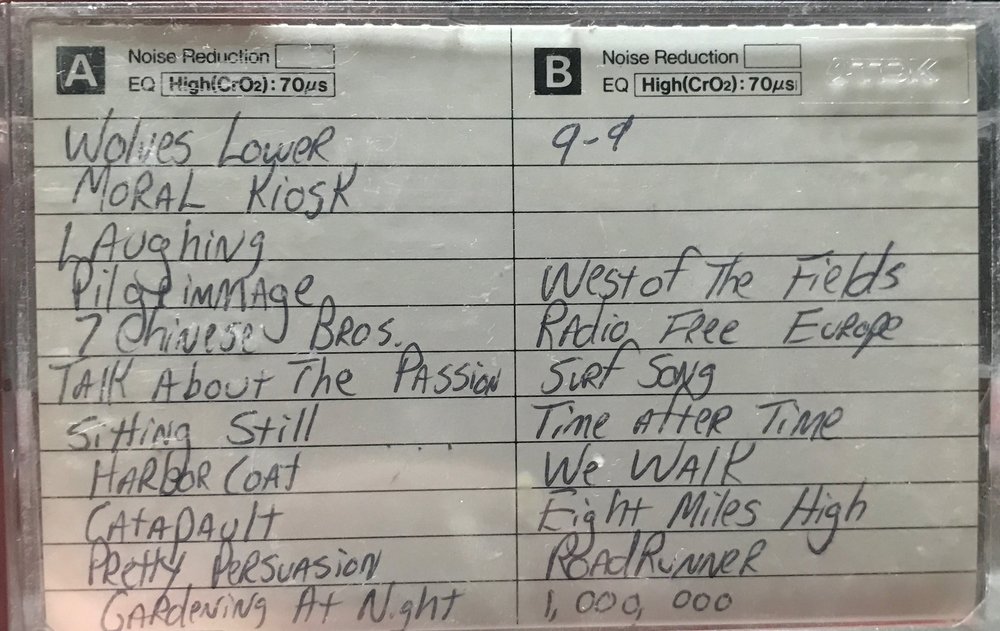 A Noise Reduction
EQ High(CrO2): 70μs
Wolves Lower
Moral Kiosk
Laughing
Pilgrimmage
7 Chinese Bros.
Talk About The Passion
Sitting Still
Harbor Coat
Catapault
Pretty Persuasion
Gardening At Night
B Noise Reduction
EQ High(CrO2): 70μs
TDK
9-9
West of The Fields
Radio Free Europe
Surf Song
Time After Time
We Walk
Eight Miles High
RoadRunner
1,000,000